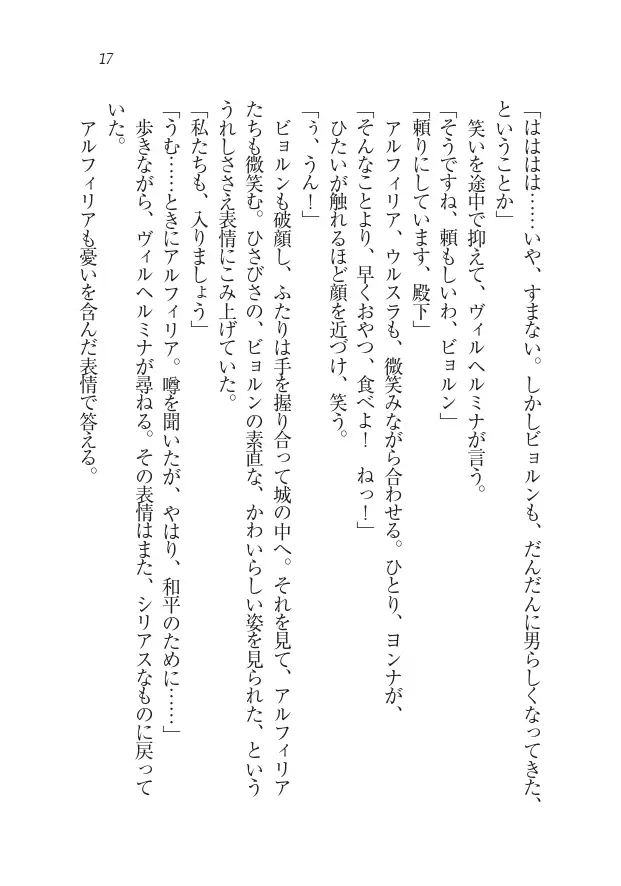 17
「はははは……いや、すまない。しかしビョルンも、だんだんに男らしくなってきた、
ということか」
笑いを途中で抑えて、ヴィルヘルミナが言う。
「そうですね、頼もしいわ、ビョルン」
「頼りにしています、殿下」
アルフィリア、ウルスラも、微笑みながら合わせる。ひとり、ヨンナが、
「そんなことより、早くおやつ、食べよ！　ねっ！」
ひたいが触れるほど顔を近づけ、笑う。
「ぅ、うん！」
ビョルンも破顔し、ふたりは手を握り合って城の中へ。それを見て、アルフィリア
たちも微笑む。ひさびさの、ビョルンの素直な、かわいらしい姿を見られた、という
うれしささえ表情にこみ上げていた。
「私たちも、入りましょう」
「うむ……ときにアルフィリア。噂を聞いたが、やはり、和平のために……」
歩きながら、ヴィルヘルミナが尋ねる。その表情はまた、シリアスなものに戻って
いた。
アルフィリアも憂いを含んだ表情で答える。